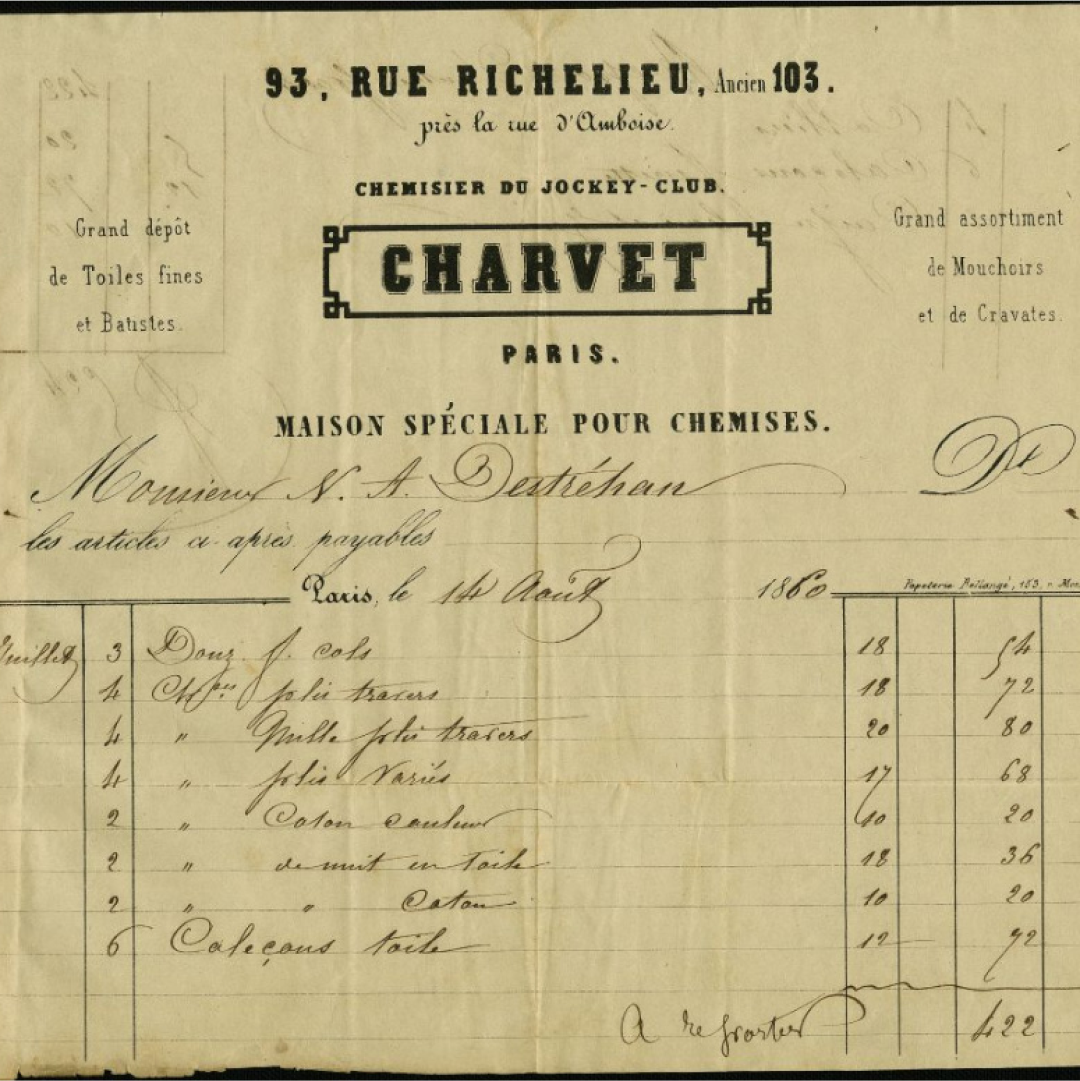 93, RUE RICHELIEU, Ancien 103.
près la rue d'Amboise.
CHEMISIER DU JOCKEY-CLUB.
Grand dépôt
de Toiles fines
et Batistes.
CHARVET
Grand assortiment
de Mouchoirs
et de Cravates.
PARIS.
MAISON SPÉCIALE POUR CHEMISES.
Monsieur N. A. Destréhan Dt
les articles ci-après payables
Paris, le 14 Août 1860
Papeterie Bellangé, 153, r.
Juillet 3 Douz. f. cols 18 54
4 Ch.ses plis travers 18 72
4 " Mille plis travers 20 80
4 " plis variés 17 68
2 " Coton couleur 10 20
2 " de nuit en toile 18 36
2 " " Coton 10 20
6 Caleçons toile 12 72
A reporter 422